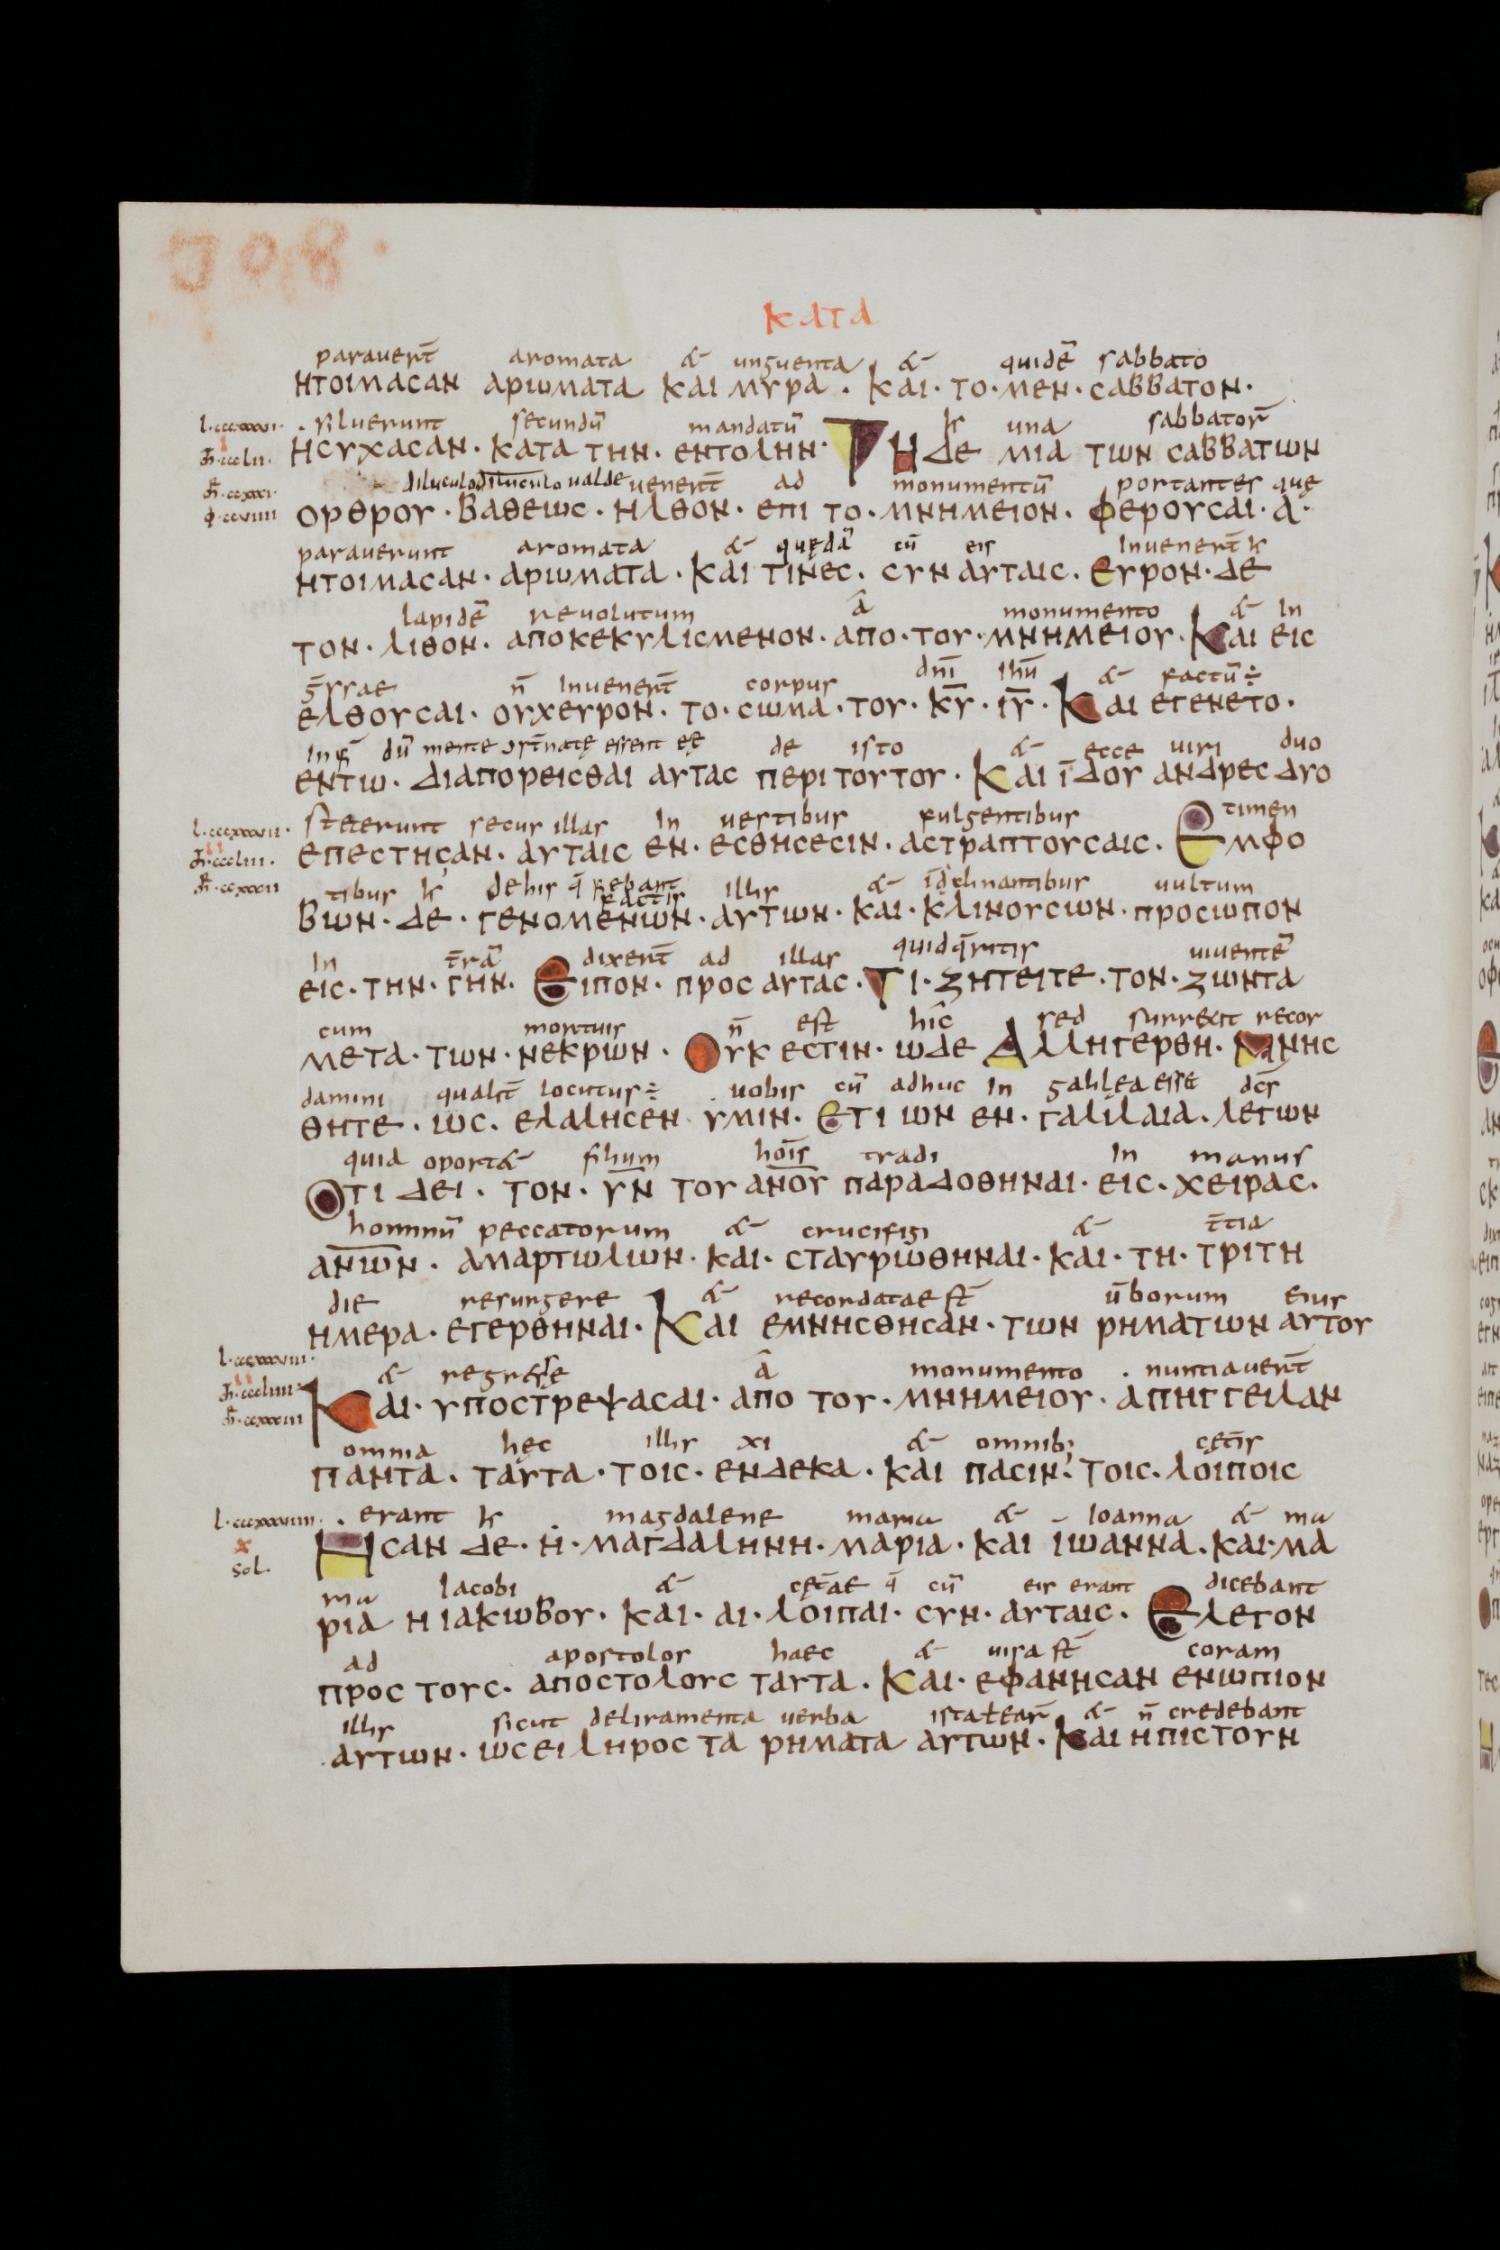 308·
κατα
parauert̄ aromata & unguenta & quidē sabbato
ητοιμασαν αριωματα και μυρα · και · το · μεν · σαββατον ·
l·cccxxxvi· siluerunt secundū mandatū una sabbator̄
ησυχασαν · κατα την · εντολην · Τη δε μια των σαββατων
diluculo diluculo ualde uenert̄ ad monumentū portantes quę
ορθρου · βαθεως · ηλθον · επι το · μνημειον · φερουσαι · α ·
parauerunt aromata & quędā cū eis Inuenert̄
ητοιμασαν · αριωματα · και τινες · συν αυταις · ευρον · δε
lapidē reuolutum â monumento & In
τον · λιθον · αποκεκυλισμενον · απο · του · μνημειου · Και εις
ḡssae n̄ Inuenert̄ corpus dn̄i ihū & factū÷
ελθουσαι · ουχευρον · το · σωμα · του · κ̄υ · ῑυ · Και εγενετο ·
dū mente essent de isto & ecce uiri duo
εντω · διαπορεισθαι αυτας περι τουτου · Και ϊδου ανδρες δυο
l·cccxxxvii· steterunt secus illas In uestibus fulgentibus timen
επεστησαν · αυταις εν · εσθησεσιν · αστραπτουσαις · Εμφο
tibus dehis q̄rebant factis illis & declinantibus uultum
βων · δε · γενομενων · αυτων · και · κλινουσων · προσωπον
In t̄rā dixert̄ ad illas quid q̄ritis uiuentē
εις · την · γην · Ειπον · προς αυτας · Τι · ζητειτε · τον · ζωντα
cum mortuis n̄ est hîc sed surrexit recor
μετα · των · νεκρων · Ουκ εστιν · ωδε Αλληγερθη · Μνης
damini qualit̄ locutus÷ uobis cū adhuc In galilea esse dc̄s
θητε · ως · ελαλησεν · υμιν · Ετι ων εν · γαλιλαια · λεγων
quia oport& filium hoīs tradi In manus
Οτι δει · τον · ῡν του αν̄ου παραδοθηναι · εις · χειρας ·
hominū peccatorum & crucifigi & t̄tia
αν̄ων · αμαρτωλων · και · σταυρωθηναι · και · τη · τριτη
die resurgere & recordatae st̄ ūborum eius
ημερα · εγερθηναι · Και εμνησθησαν · των ρηματων αυτου
l·cccxxxviii· & regresse â monumento · nuntiauert̄
Και · υποστρεψασαι · απο του · μνημειου · απηγγειλαν
omnia hęc illis xi & omnib; cęt̄is
παντα · ταυτα · τοις · ενδεκα · και πασιν · τοις · λοιποις
l·cccxxxviiii· · erant magdalene maria & Ioanna & ma
sol. Ησαν δε · η · μαγδαληνη · μαρια · και ιωαννα · και · μα
ria Iacobi & cęt̄ae q̄ cū eis erant dicebant
ρια η ιακωβου · και · αι · λοιπαι · συν · αυταις · Ελεγον
ad apostolos haec & uisa st̄ coram
προς τους · αποστολους ταυτα · Και · εφανησαν ενωπιον
illis sicut deliramenta uerba ista & n̄ credebant
αυτων · ωσει ληρος τα ρηματα αυτων · Και ηπιστουν